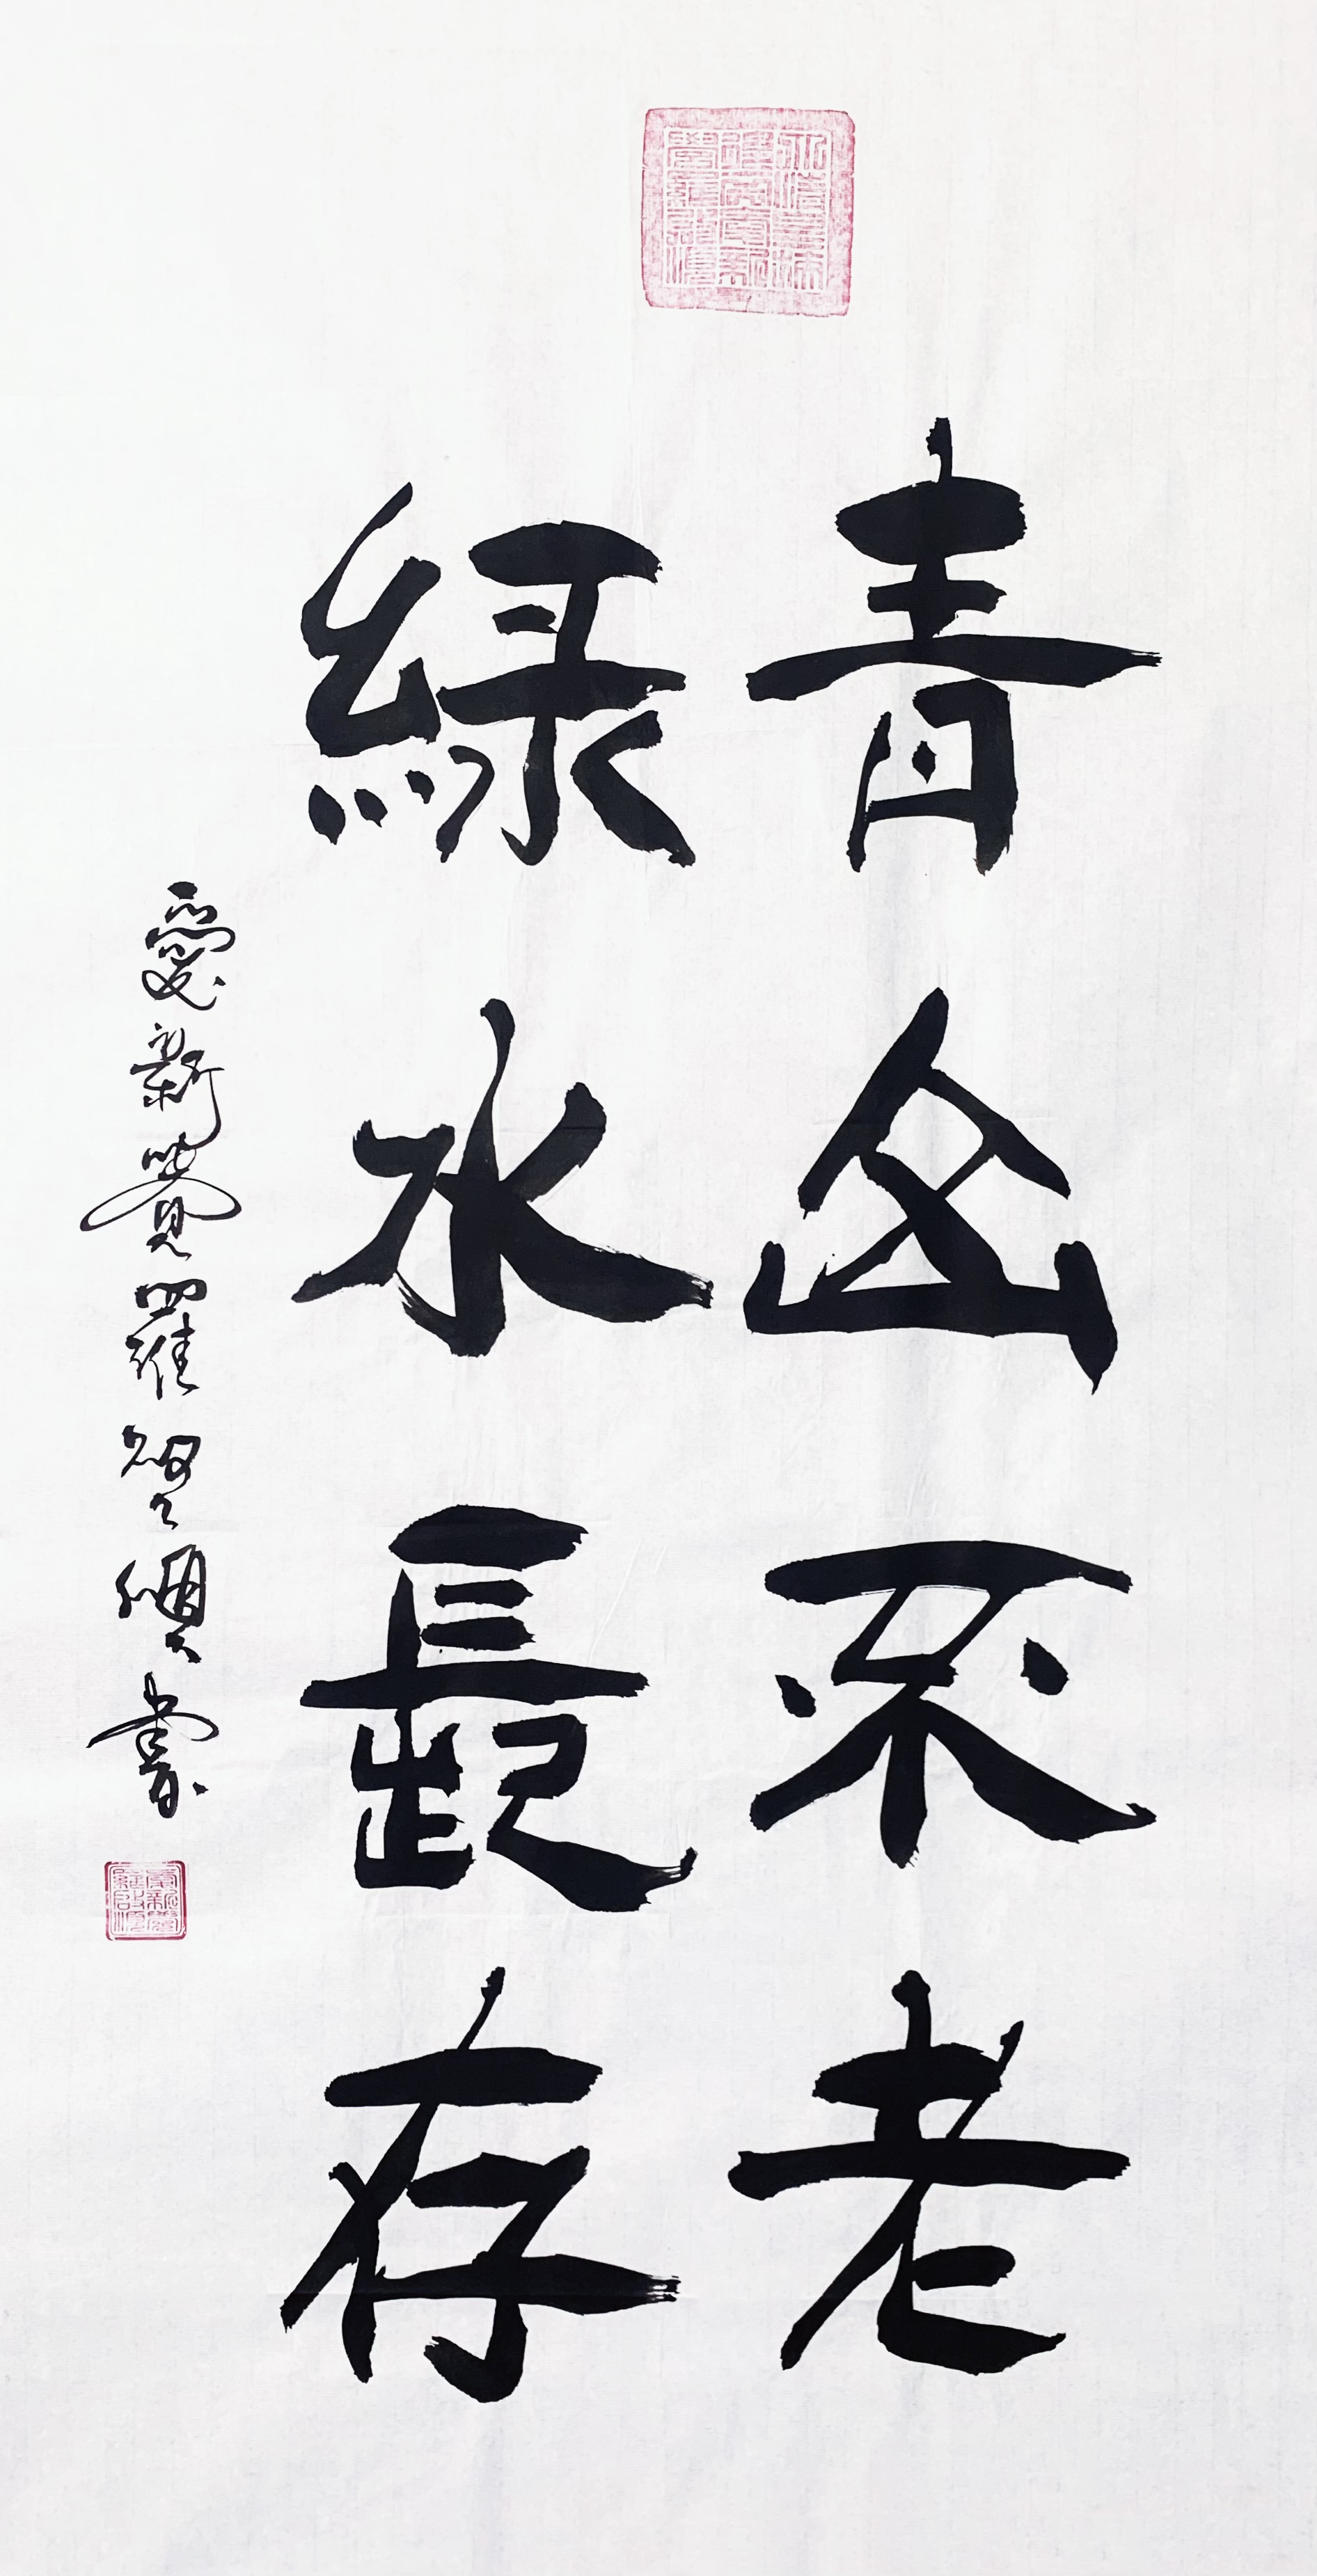 青山不老
綠水長存
愛新覺羅智順書